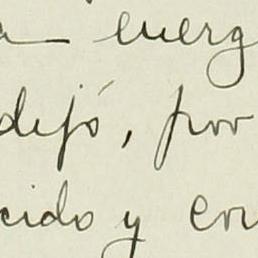 energ
dejó, por
cido y con